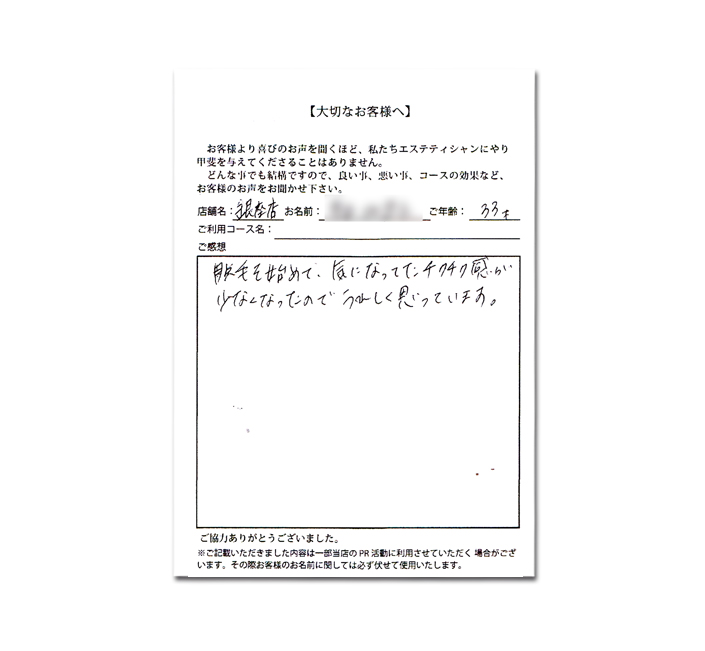 【大切なお客様へ】
お客様より喜びのお声を聞くほど、私たちエステティシャンにやり
甲斐を与えてくださることはありません。
どんな事でも結構ですので、良い事、悪い事、コースの効果など、
お客様のお声をお聞かせ下さい。
店舗名：銀座店 お名前： ご年齢：33才
ご利用コース名：
ご感想
脱毛を始めて、気になってたチクチク感が
少なくなったのでうれしく思っています。
ご協力ありがとうございました。
※ご記載いただきました内容は一部当店のPR活動に利用させていただく場合がござ
います。その際お客様のお名前に関しては必ず伏せて使用いたします。